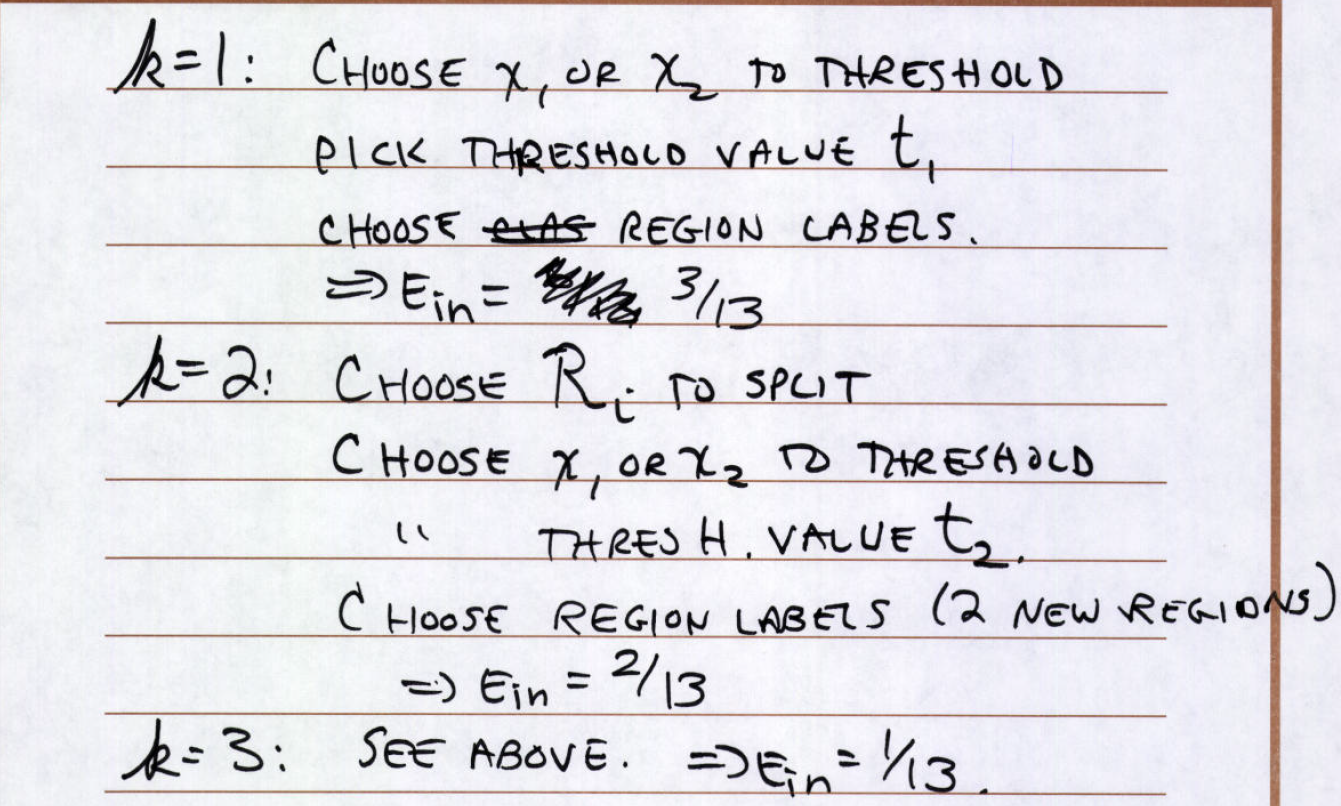 k=1: CHOOSE x₁ OR x₂ TO THRESHOLD
PICK THRESHOLD VALUE t₁
CHOOSE ~~CLAS~~ REGION LABELS.
⇒ Eᵢₙ = 3/13
k=2: CHOOSE Rᵢ TO SPLIT
CHOOSE x₁ OR x₂ TO THRESHOLD
" THRESH. VALUE t₂.
CHOOSE REGION LABELS (2 NEW REGIONS)
⇒ Eᵢₙ = 2/13
k=3: SEE ABOVE. ⇒ Eᵢₙ = 1/13.